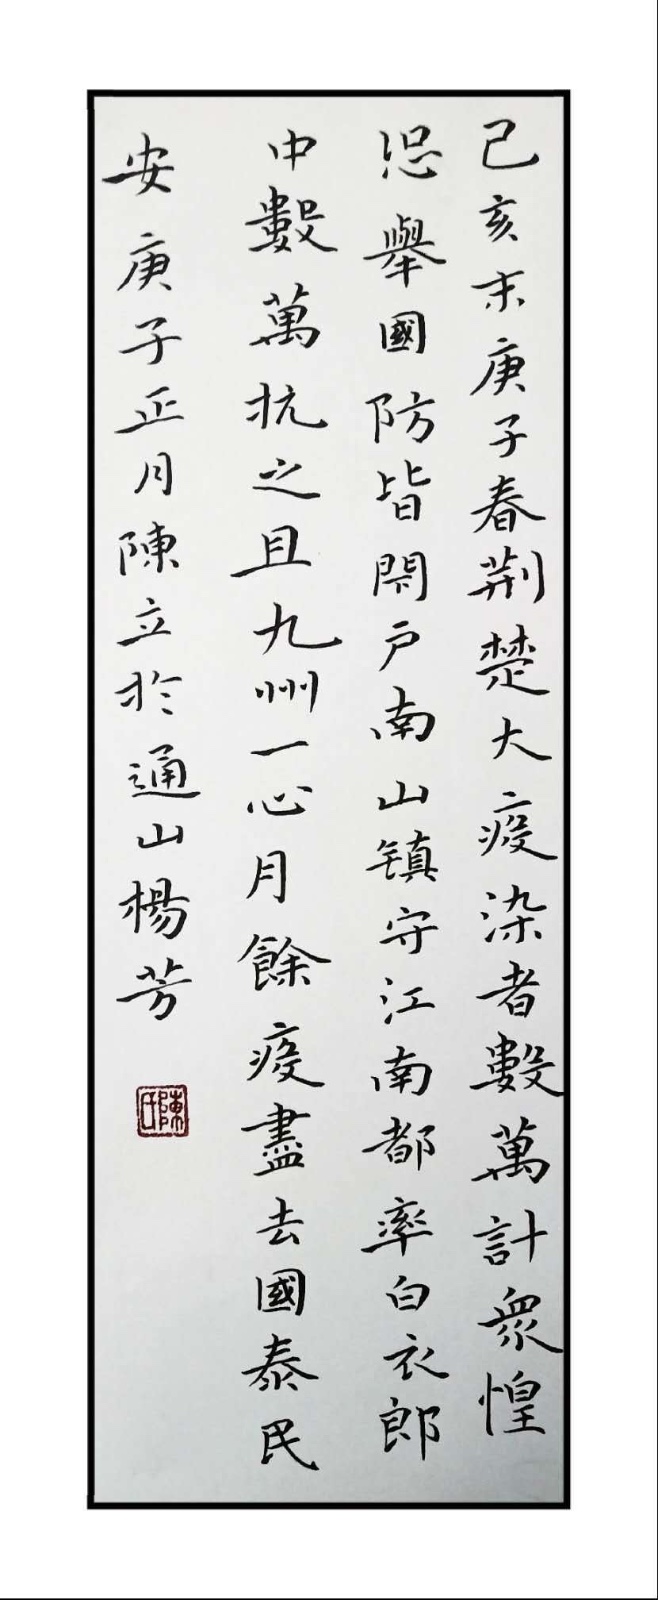 己亥末庚子春荆楚大疫染者數萬計衆惶
恐舉國防皆閉戶南山镇守江南都率白衣郎
中數萬抗之且九州一心月餘疫盡去國泰民
安庚子正月陳立於通山楊芳
陳氏